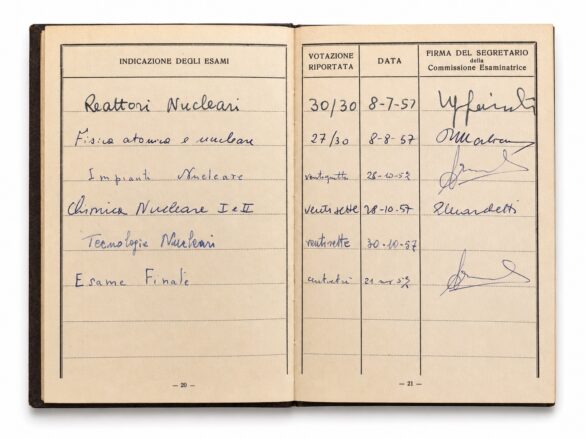 INDICAZIONE DEGLI ESAMI
VOTAZIONE
RIPORTATA
DATA
FIRMA DEL SEGRETARIO
della
Commissione Esaminatrice
Reattori Nucleari 30/30 8-7-57
Fisica atomica e nucleare 27/30 8-8-57
Impianti Nucleare ventiquattro 28-10-57
Chimica Nucleare I e II ventisette 28-10-57
Tecnologie Nucleari ventisette 30-10-57
Esame Finale
— 20 —
— 21 —